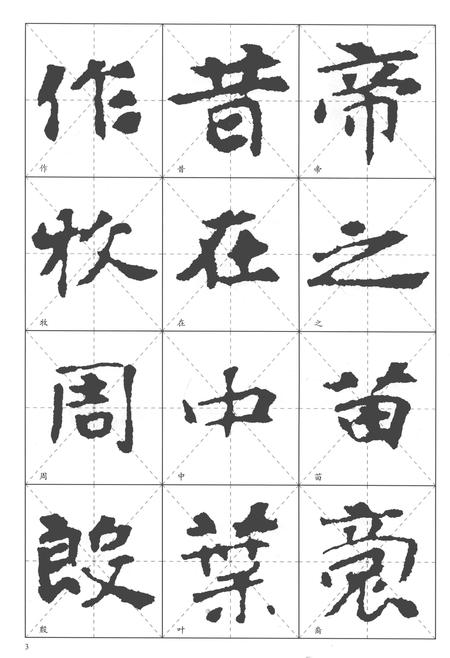 帝之苗裔
帝之苗裔
昔在中葉
昔在中叶
作牧周殷
作牧周殷
3